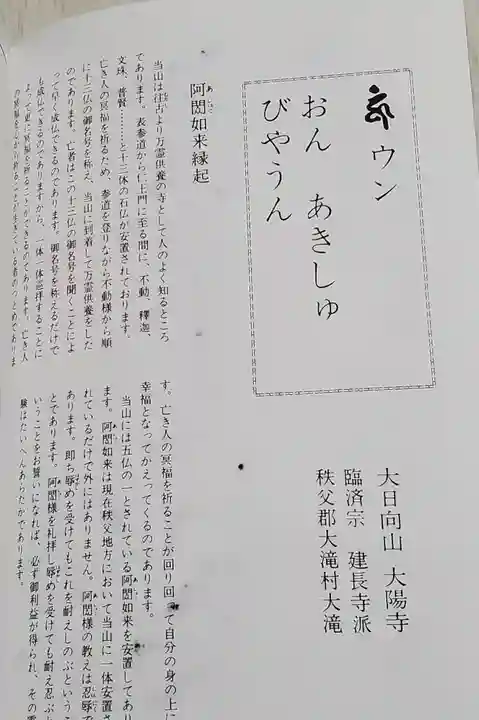 ウン
おん あきしゅ
びやうん
大日向山 大陽寺
臨済宗 建長寺派
秩父郡大滝村大滝
阿閦如来縁起
当山は往古より万霊供養の寺として人のよく知るところ
であります。表参道から仁王門に至る間に、不動、釋迦、
文珠、普賢………と十三体の石仏が安置されております。
亡き人の冥福を祈るため、参道を登りながら不動様から順
に十三仏の御名号を称え、当山に到着して万霊供養をした
のであります。亡者はこの十三仏の御名号を聞くことによ
って早く成仏できるのであります。御名号を称えるだけで
も成仏できるのでありますから、一体一体巡拝することに
よって更に冥福を祈ることができるのであります。亡き人
の冥福を心から祈ることが生きている者のつとめでありま
す。亡き人の冥福を祈ることが回り回って自分の身の上に
幸福となってかえってくるのであります。
当山には五仏の一とされている阿閦如来を安置してあり
ます。阿閦如来は現在秩父地方において当山に一体安置さ
れているだけで外にはありません。阿閦様の教えは忍辱で
あります。即ち辱めを受けてもこれを耐えしのぶというこ
とであります。阿閦様を礼拝し辱めを受けても耐え忍ぶと
いうことをお誓いになれば、必ず御利益が得られ、その霊
験はたいへんあらたかであります。